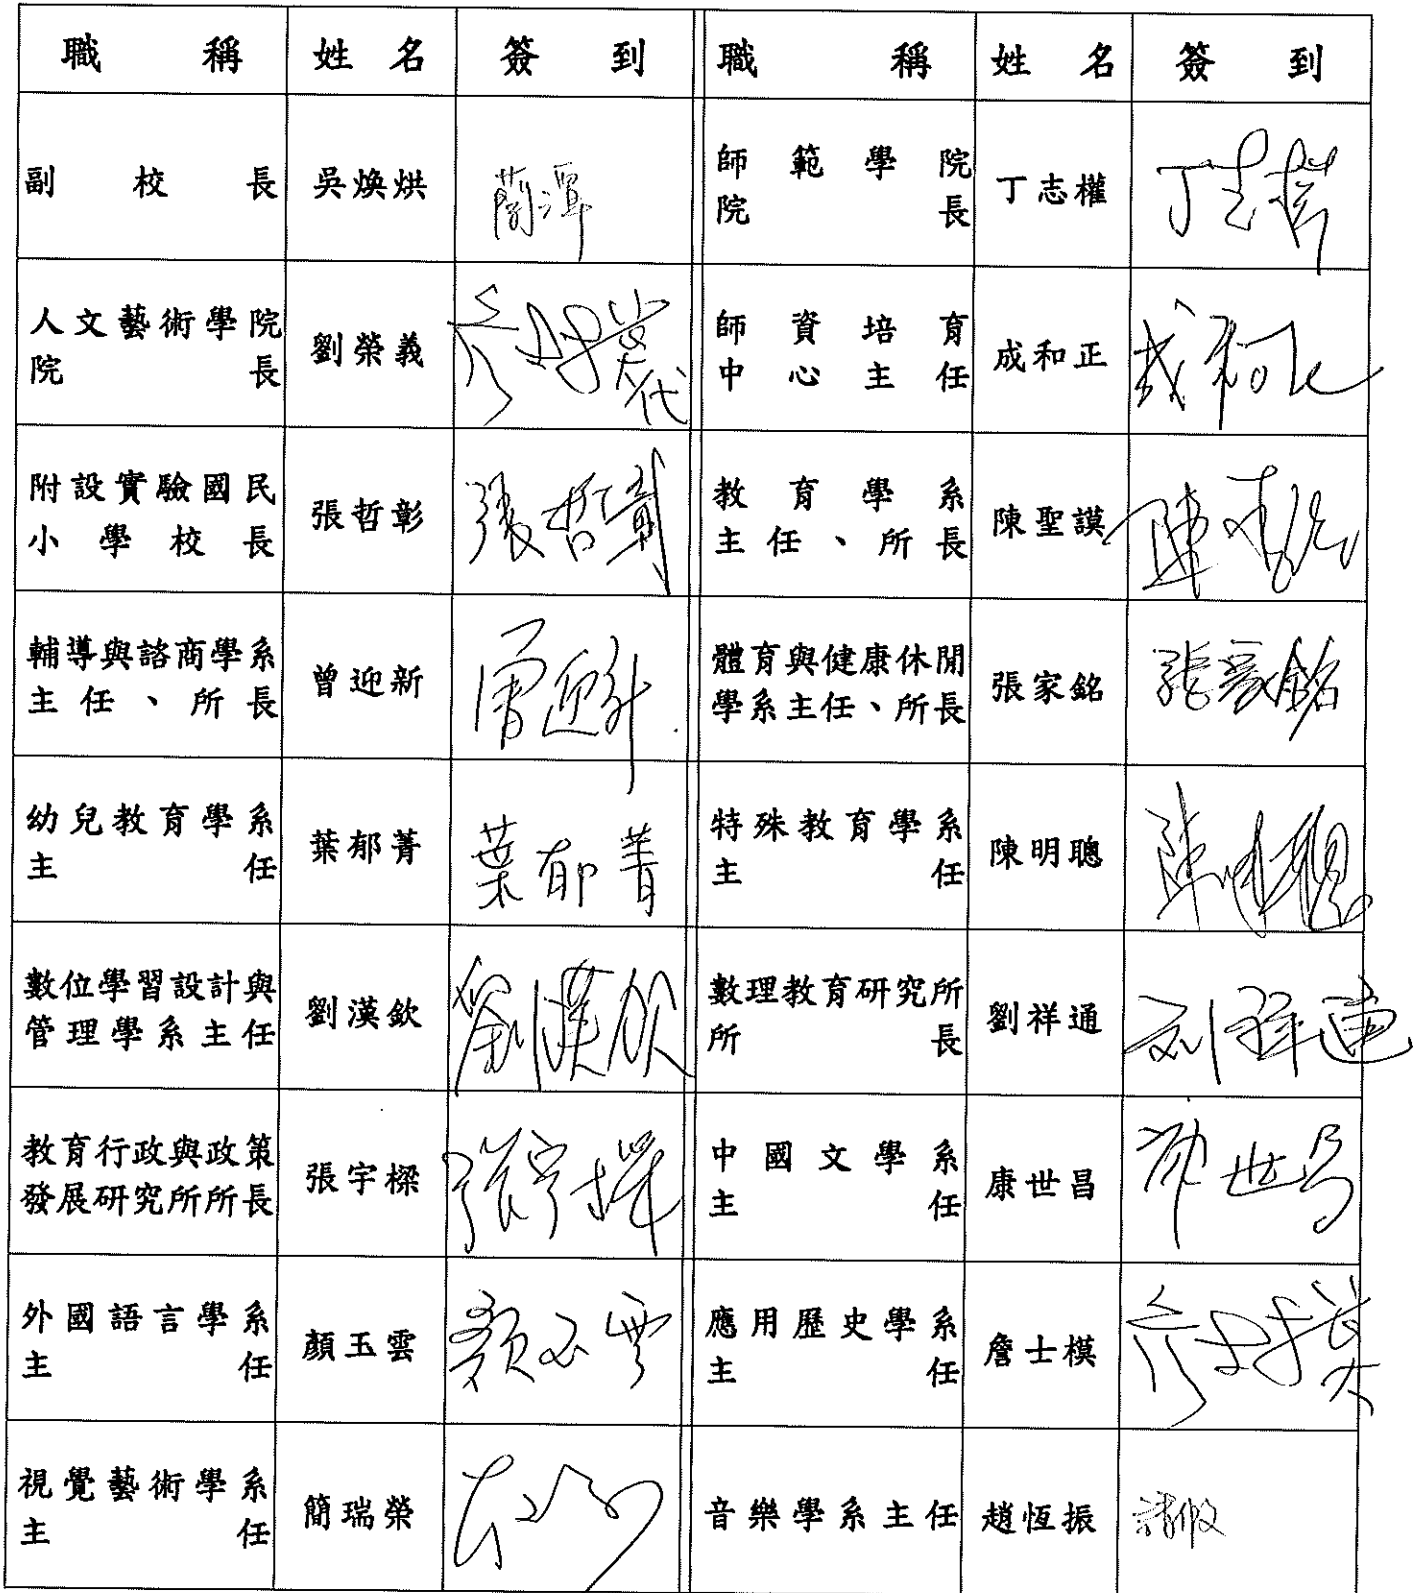 職稱 姓名 簽到 職稱 姓名 簽到
副校長 吳煥烘 蘭潭 師範學院院長 丁志權 丁志權
人文藝術學院院長 劉榮義 詹士模代 師資培育中心主任 成和正 成和正
附設實驗國民小學校長 張哲彰 張哲彰 教育學系主任、所長 陳聖謨 陳聖謨
輔導與諮商學系主任、所長 曾迎新 曾迎新 體育與健康休閒學系主任、所長 張家銘 張家銘
幼兒教育學系主任 葉郁菁 葉郁菁 特殊教育學系主任 陳明聰 陳明聰
數位學習設計與管理學系主任 劉漢欽 劉漢欽 數理教育研究所所長 劉祥通 劉祥通
教育行政與政策發展研究所所長 張宇樑 張宇樑 中國文學系主任 康世昌 康世昌
外國語言學系主任 顏玉雲 顏玉雲 應用歷史學系主任 詹士模 詹士模
視覺藝術學系主任 簡瑞榮 音樂學系主任 趙恆振 請假